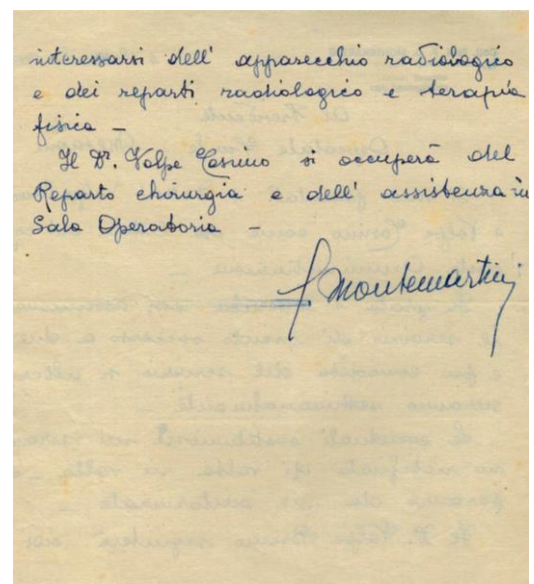 interessarsi dell' apparecchio radiologico
e dei reparti radiologico e terapia
fisica -
Il Dr. Volpe Cosimo si occuperà del
Reparto chirurgia e dell' assistenza in
Sala Operatoria -
Montemartini